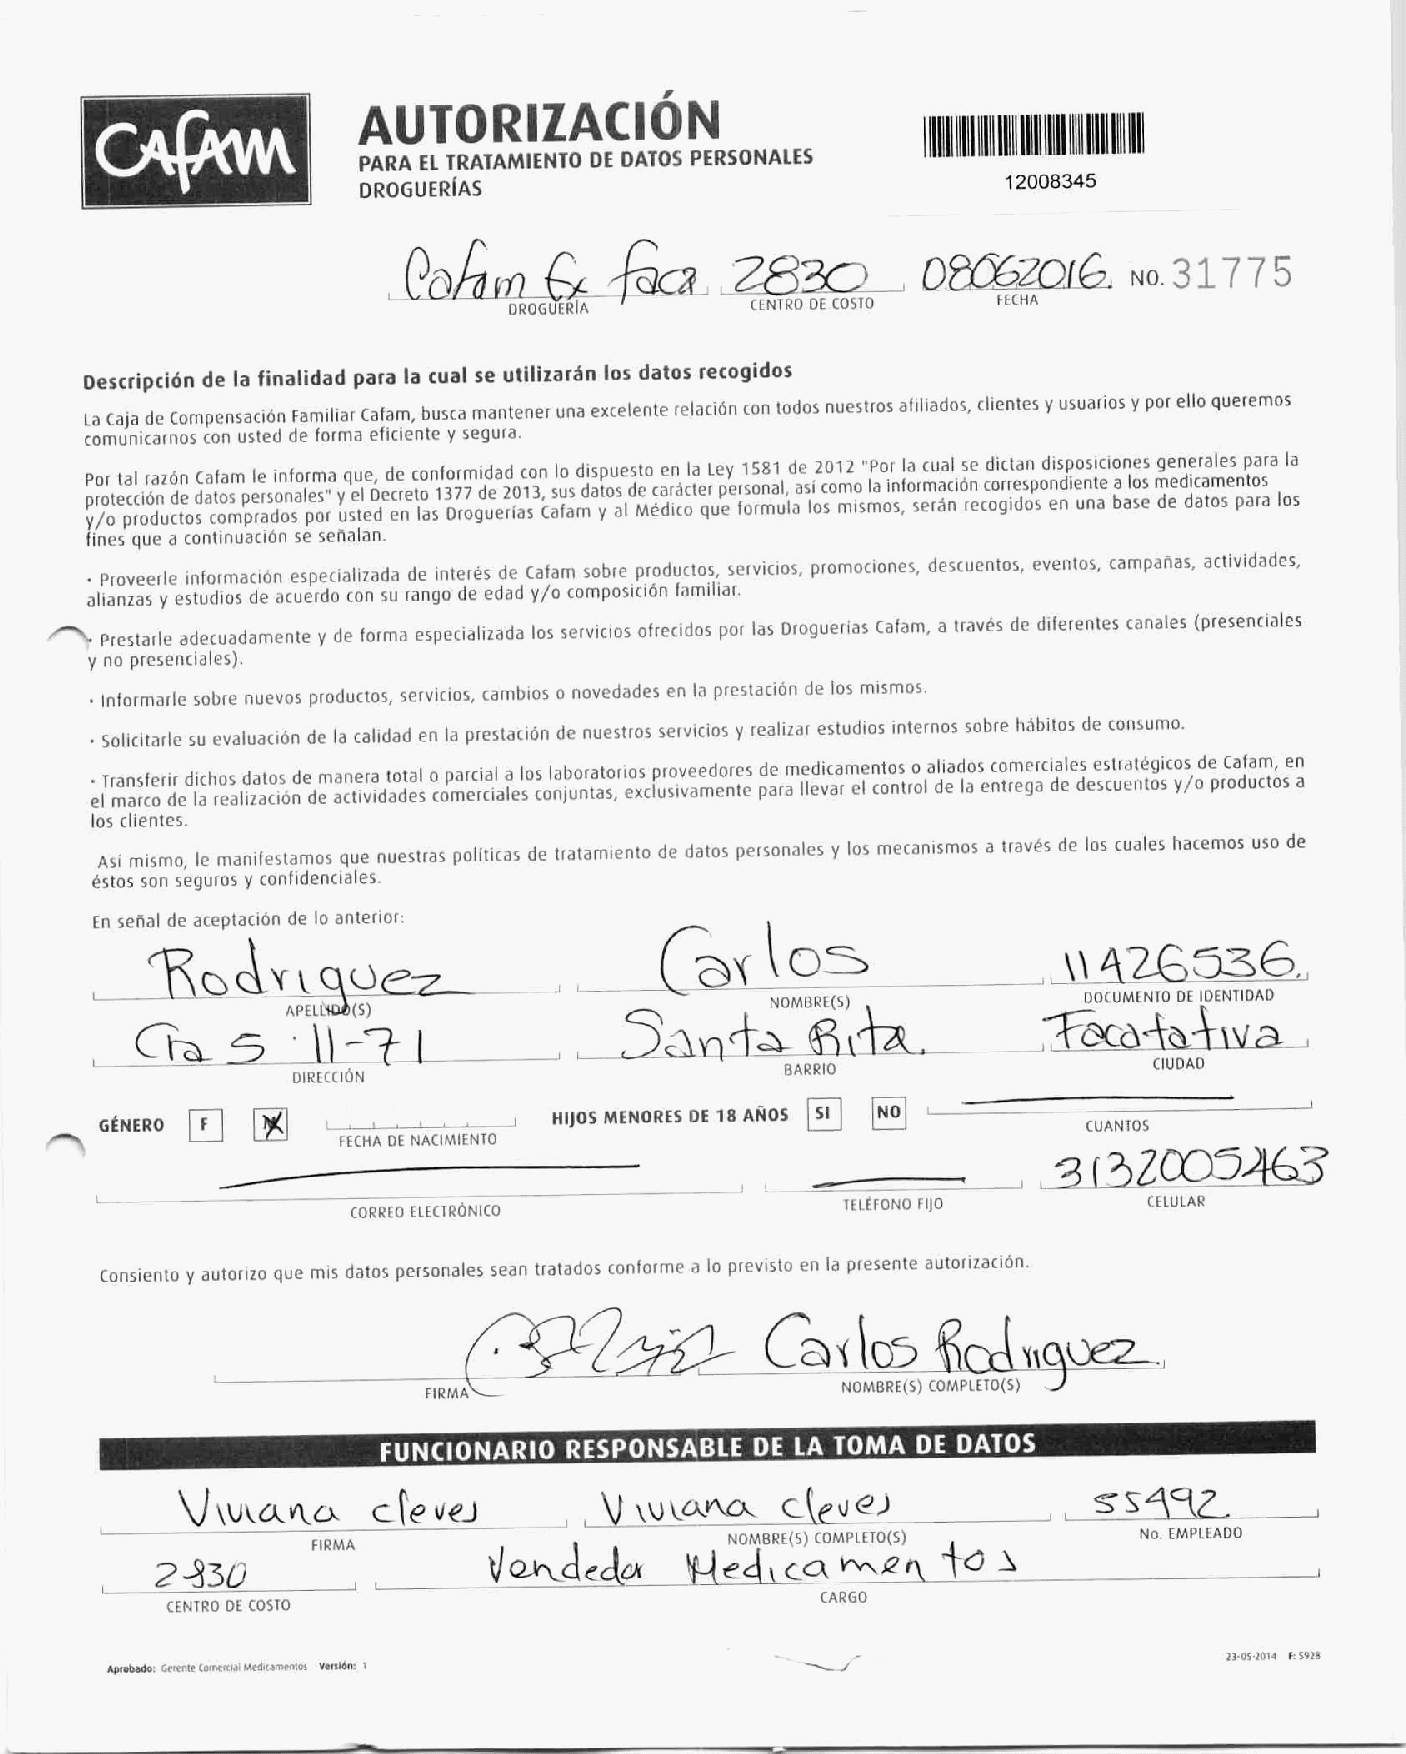 CAFAM
AUTORIZACIÓN
PARA EL TRATAMIENTO DE DATOS PERSONALES
DROGUERÍAS
12008345
Cafam Ex faca 2830 08062016 NO. 31775
DROGUERÍA CENTRO DE COSTO FECHA
Descripción de la finalidad para la cual se utilizarán los datos recogidos
La Caja de Compensación Familiar Cafam, busca mantener una excelente relación con todos nuestros afiliados, clientes y usuarios y por ello queremos
comunicarnos con usted de forma eficiente y segura.
Por tal razón Cafam le informa que, de conformidad con lo dispuesto en la Ley 1581 de 2012 "Por la cual se dictan disposiciones generales para la
protección de datos personales" y el Decreto 1377 de 2013, sus datos de carácter personal, así como la información correspondiente a los medicamentos
y/o productos comprados por usted en las Droguerías Cafam y al Médico que formula los mismos, serán recogidos en una base de datos para los
fines que a continuación se señalan.
· Proveerle información especializada de interés de Cafam sobre productos, servicios, promociones, descuentos, eventos, campañas, actividades,
alianzas y estudios de acuerdo con su rango de edad y/o composición familiar.
· Prestarle adecuadamente y de forma especializada los servicios ofrecidos por las Droguerías Cafam, a través de diferentes canales (presenciales
y no presenciales).
· Informarle sobre nuevos productos, servicios, cambios o novedades en la prestación de los mismos.
· Solicitarle su evaluación de la calidad en la prestación de nuestros servicios y realizar estudios internos sobre hábitos de consumo.
· Transferir dichos datos de manera total o parcial a los laboratorios proveedores de medicamentos o aliados comerciales estratégicos de Cafam, en
el marco de la realización de actividades comerciales conjuntas, exclusivamente para llevar el control de la entrega de descuentos y/o productos a
los clientes.
Así mismo, le manifestamos que nuestras políticas de tratamiento de datos personales y los mecanismos a través de los cuales hacemos uso de
éstos son seguros y confidenciales.
En señal de aceptación de lo anterior:
Rodriguez Carlos 11426536.
APELLIDO(S) NOMBRE(S) DOCUMENTO DE IDENTIDAD
Cra 5 · 11-71 Santa Rita. Facatativa
DIRECCIÓN BARRIO CIUDAD
GÉNERO F X HIJOS MENORES DE 18 AÑOS SI NO
FECHA DE NACIMIENTO CUANTOS
3132005463
CORREO ELECTRÓNICO TELÉFONO FIJO CELULAR
Consiento y autorizo que mis datos personales sean tratados conforme a lo previsto en la presente autorización.
Carlos Rodriguez
FIRMA NOMBRE(S) COMPLETO(S)
FUNCIONARIO RESPONSABLE DE LA TOMA DE DATOS
Viviana cleves Viviana cleves 55492
FIRMA NOMBRE(S) COMPLETO(S) No. EMPLEADO
2830 Vendedor Medicamentos
CENTRO DE COSTO CARGO
Aprobado: Gerente Comercial Medicamentos Versión: 1 23-05-2014 F: 5928